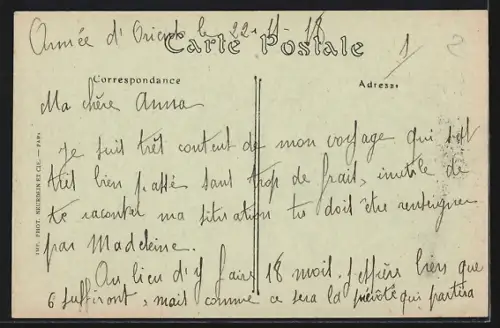 Armée d'Orient le 22-4-18
Carte Postale
1
2
Correspondance
Adresse
Ma chère Anna
Je suis très content de mon voyage qui s'est
très bien passé sans trop de frais, inutile de
te raconter ma situation tu dois être renseignée
par Madeleine.
Au lieu d'y faire 18 mois j'espère bien que
6 suffiront, mais comme ce sera la prévôté qui partira
IMP. PHOT. NEURDEIN ET CIE. — PARIS